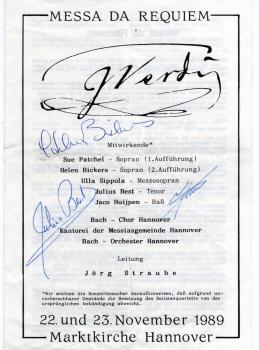 MESSA DA REQUIEM
G Verdi
Helen Bickers
Mitwirkende*
Sue Patchel - Sopran (1.Aufführung)
Helen Bickers - Sopran (2.Aufführung)
Ulla Sippola - Mezzosopran
Julius Best - Tenor
Jaco Huijpen - Baß
Julius Best
Bach - Chor Hannover
Kantorei der Messiasgemeinde Hannover
Bach - Orchester Hannover
Leitung
Jörg Straube
*Wir möchten die Konzertbesucher daraufhinweisen, daß aufgrund un-
vorhersehbarer Umstände die Besetzung des Solistenquartetts von der
ursprünglichen Ankündigung abweicht.
22. und 23. November 1989
Marktkirche Hannover